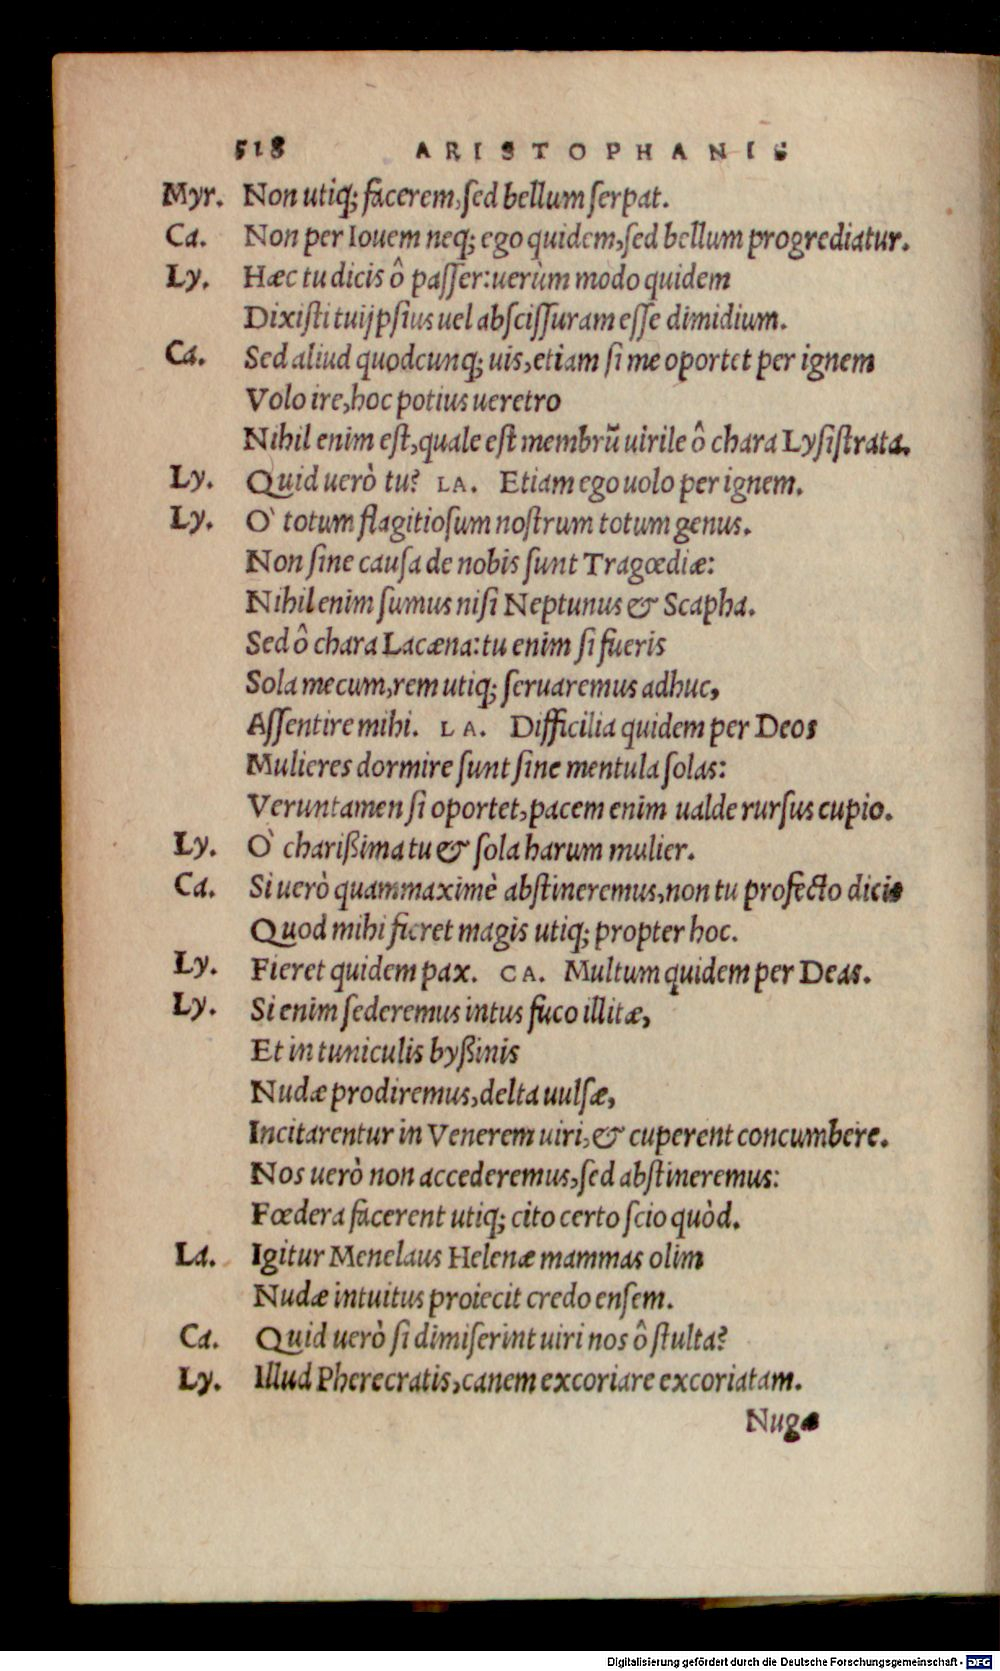 518 ARISTOPHANIS
Myr. Non utiq; facerem, sed bellum serpat.
Ca. Non per Iouem neq; ego quidem, sed bellum progrediatur.
Ly. Hæc tu dicis ô passer: uerùm modo quidem
Dixisti tuijpsius uel abscissuram esse dimidium.
Ca. Sed aliud quodcunq; uis, etiam si me oportet per ignem
Volo ire, hoc potius ueretro
Nihil enim est, quale est membrũ uirile ô chara Lysistrata.
Ly. Quid uerò tu? LA. Etiam ego uolo per ignem.
Ly. Ò totum flagitiosum nostrum totum genus.
Non sine causa de nobis sunt Tragœdiæ:
Nihil enim sumus nisi Neptunus & Scapha.
Sed ô chara Lacæna: tu enim si fueris
Sola mecum, rem utiq; seruaremus adhuc,
Assentire mihi. LA. Difficilia quidem per Deos
Mulieres dormire sunt sine mentula solas:
Veruntamen si oportet, pacem enim ualde rursus cupio.
Ly. Ò charißima tu & sola harum mulier.
Ca. Si uerò quammaximè abstineremus, non tu profecto dicis
Quod mihi fieret magis utiq; propter hoc.
Ly. Fieret quidem pax. CA. Multum quidem per Deas.
Ly. Si enim sederemus intus fuco illitæ,
Et in tuniculis byßinis
Nudæ prodiremus, delta uulsæ,
Incitarentur in Venerem uiri, & cuperent concumbere.
Nos uerò non accederemus, sed abstineremus:
Fœdera facerent utiq; cito certo scio quòd.
La. Igitur Menelaus Helenæ mammas olim
Nudæ intuitus proiecit credo ensem.
Ca. Quid uerò si dimiserint uiri nos ô stulta?
Ly. Illud Pherecratis, canem excoriare excoriatam.
Nugæ
Digitalisierung gefördert durch die Deutsche Forschungsgemeinschaft - DFG